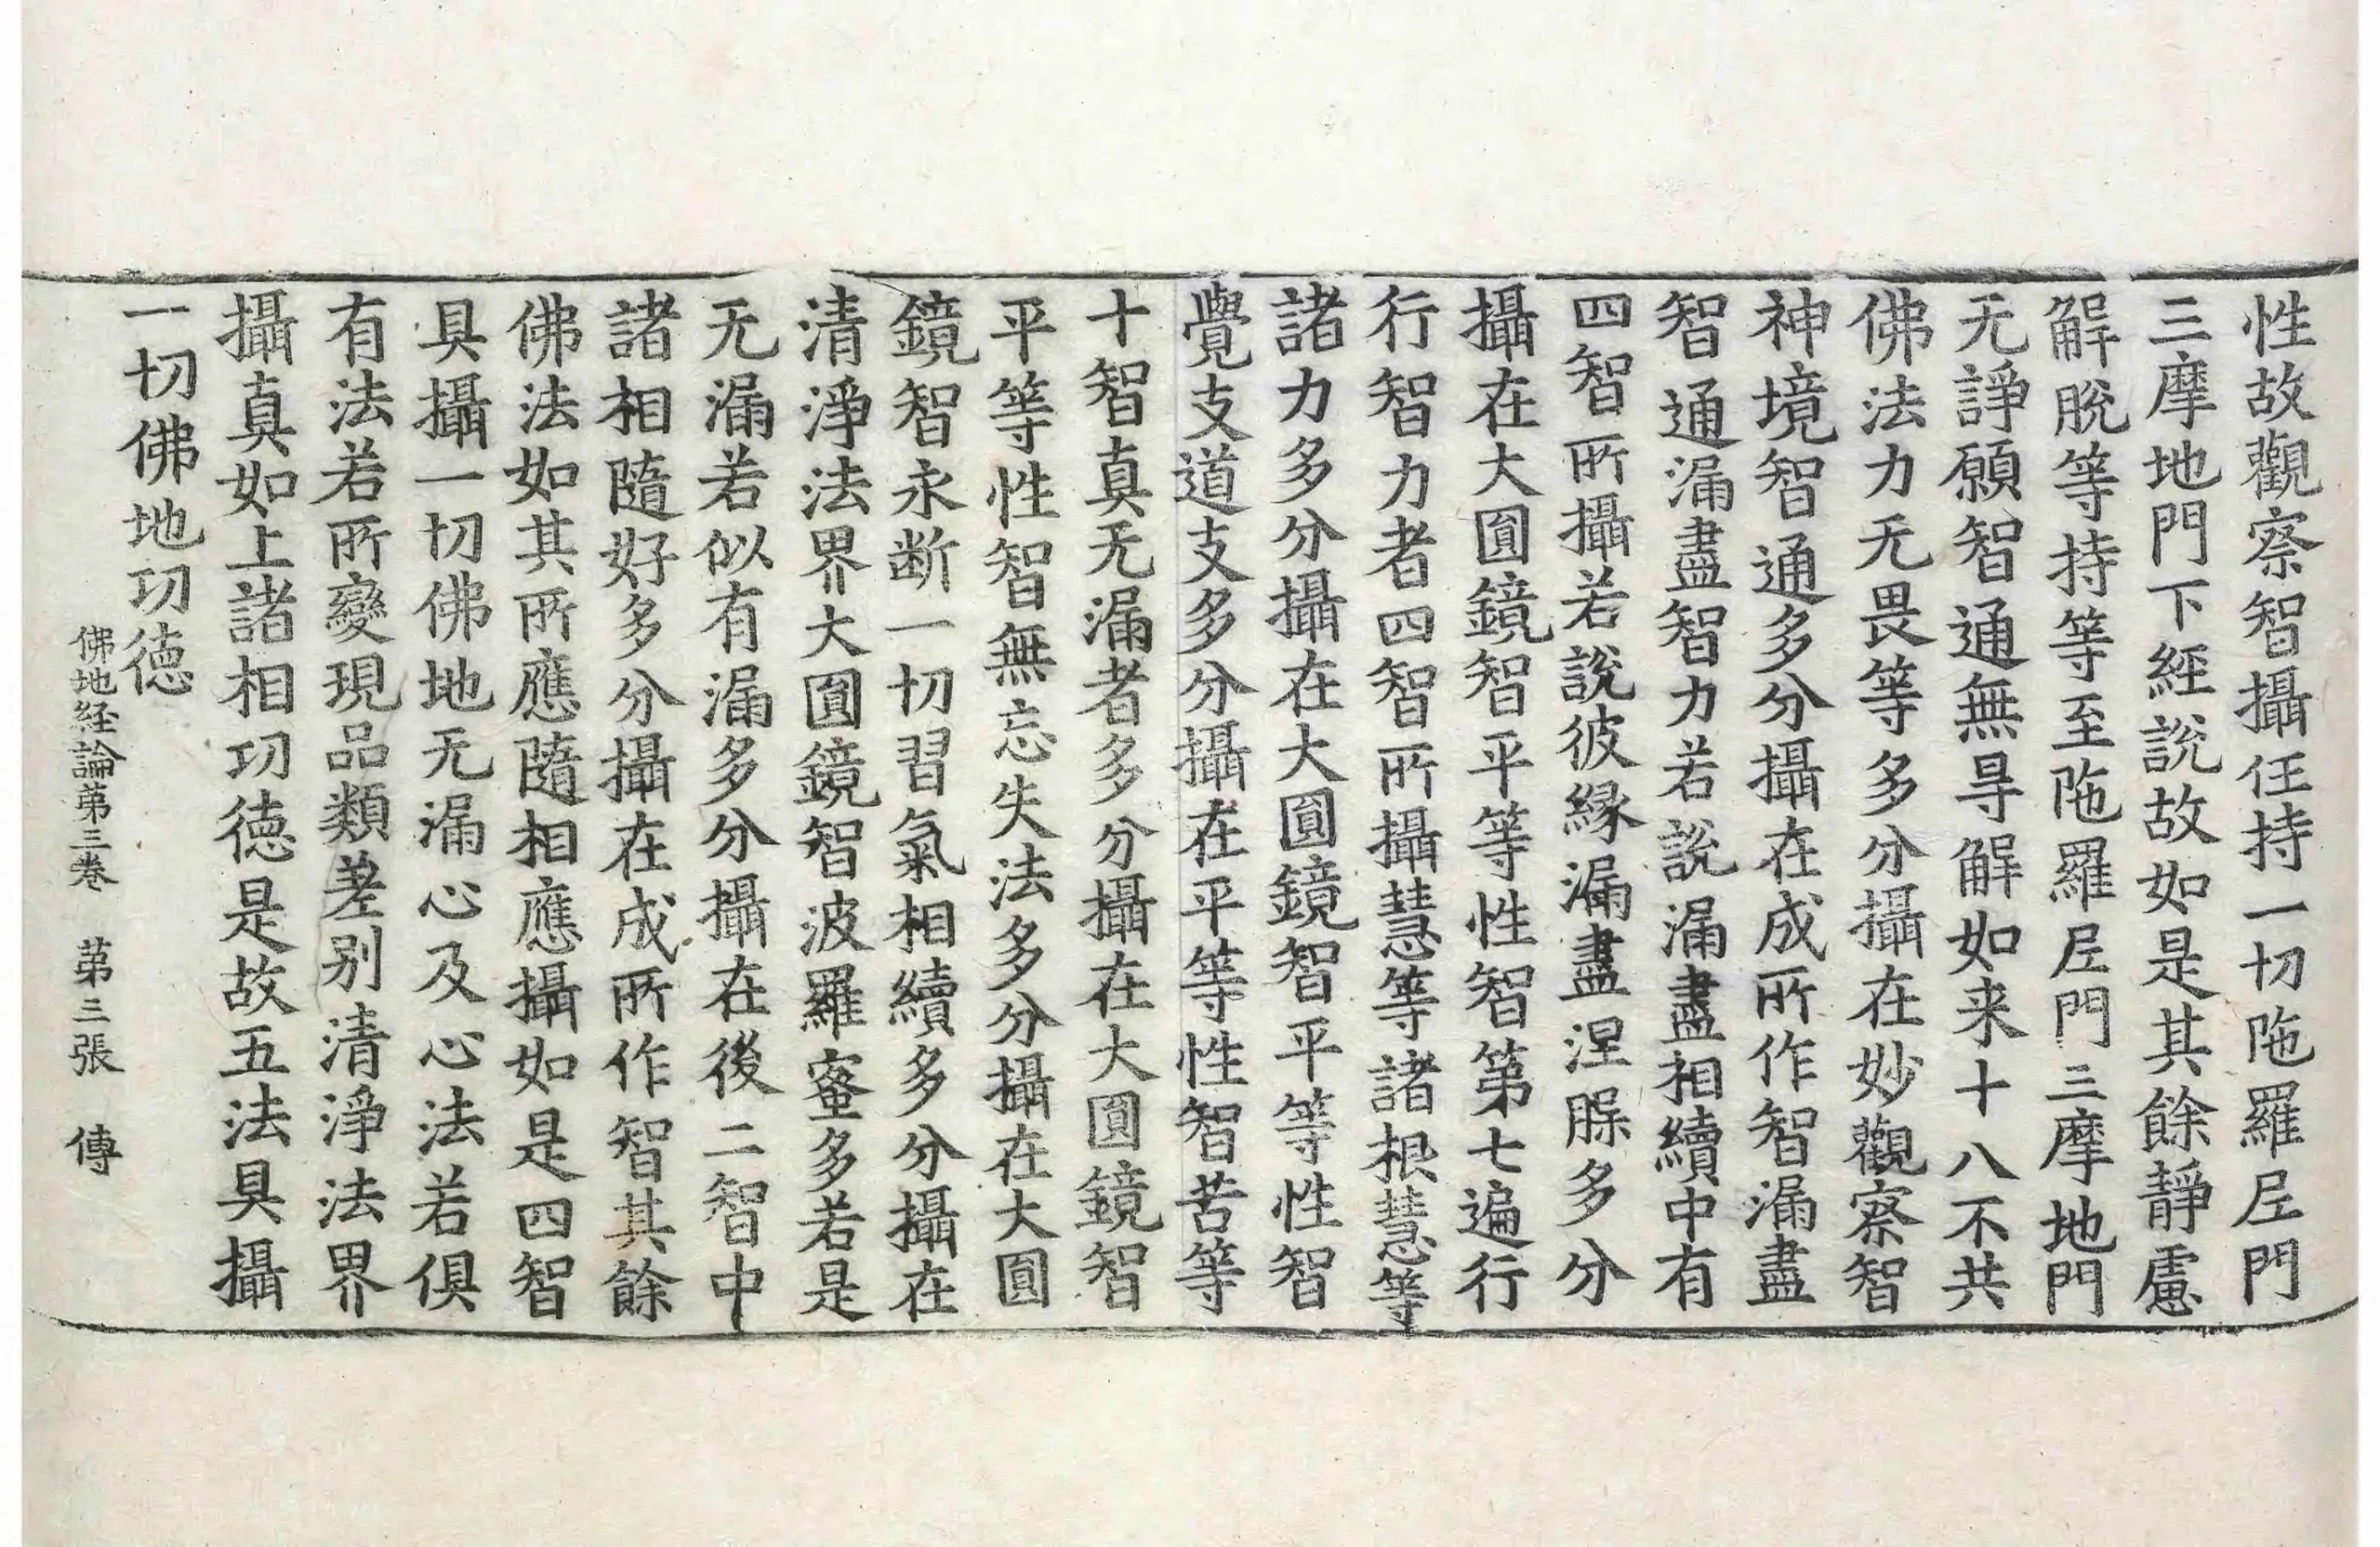 性故觀察智攝任持一切陁羅𡰱門
三摩地門下經說故如是其餘靜慮
解脫等持等至陁羅𡰱門三摩地門
无諍願智通無㝵解如来十八不共
佛法力无畏等多分攝在妙觀察智
神境智通多分攝在成所作智漏盡
智通漏盡智力若說漏盡相續中有
四智所攝若說彼緣漏盡涅槃多分
攝在大圎鏡智平等性智第七遍行
行智力者四智所攝慧等諸根慧等
諸力多分攝在大圎鏡智平等性智
覺支道支多分攝在平等性智苦等
十智真无漏者多分攝在大圎鏡智
平等性智無忘失法多分攝在大圎
鏡智永断一切習氣相續多分攝在
清淨法界大圎鏡智波羅蜜多若是
无漏若似有漏多分攝在後二智中
諸相隨好多分攝在成所作智其餘
佛法如其所應隨相應攝如是四智
具攝一切佛地无漏心及心法若俱
有法若所變現品類差别清淨法界
攝真如上諸相功德是故五法具攝
一切佛地功德
佛地経論苐三卷　苐三張　傳